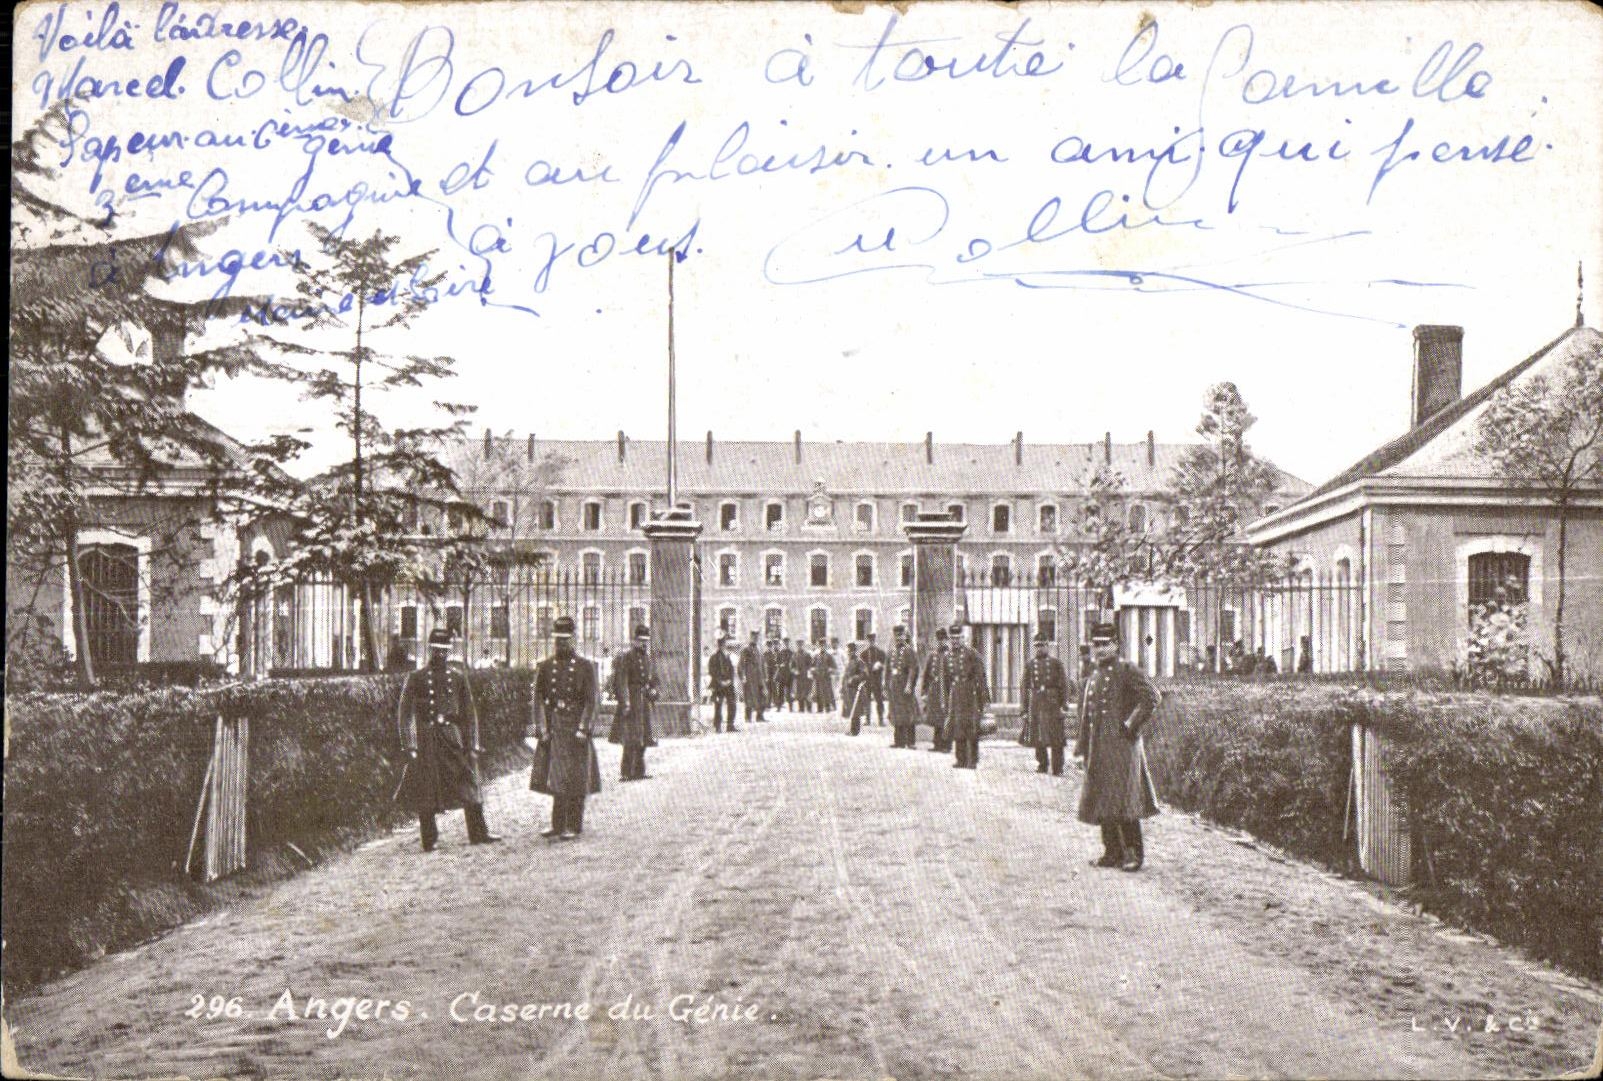 Voilà l'adresse.
Marcel. Collin.
Sapeur. au 6ème
génie
3eme Compagnie
à Angers
Maine et Loire
Bonsoir à toute la famille.
et au plaisir. un ami qui pense.
à vous. Collin
296. Angers. Caserne du Génie.
L. V. & Cie